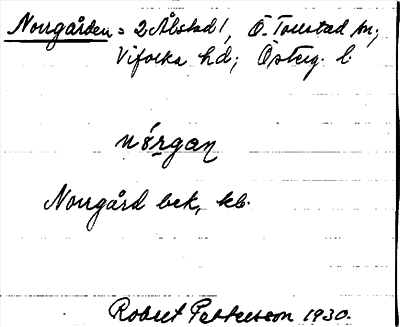 Norrgården = 2 Ålstad, Ö. Tollstad sn;
Vifolka hd; Österg. l.
nórgan
Norrgård bek, kb.
Robert Pettersson 1930.